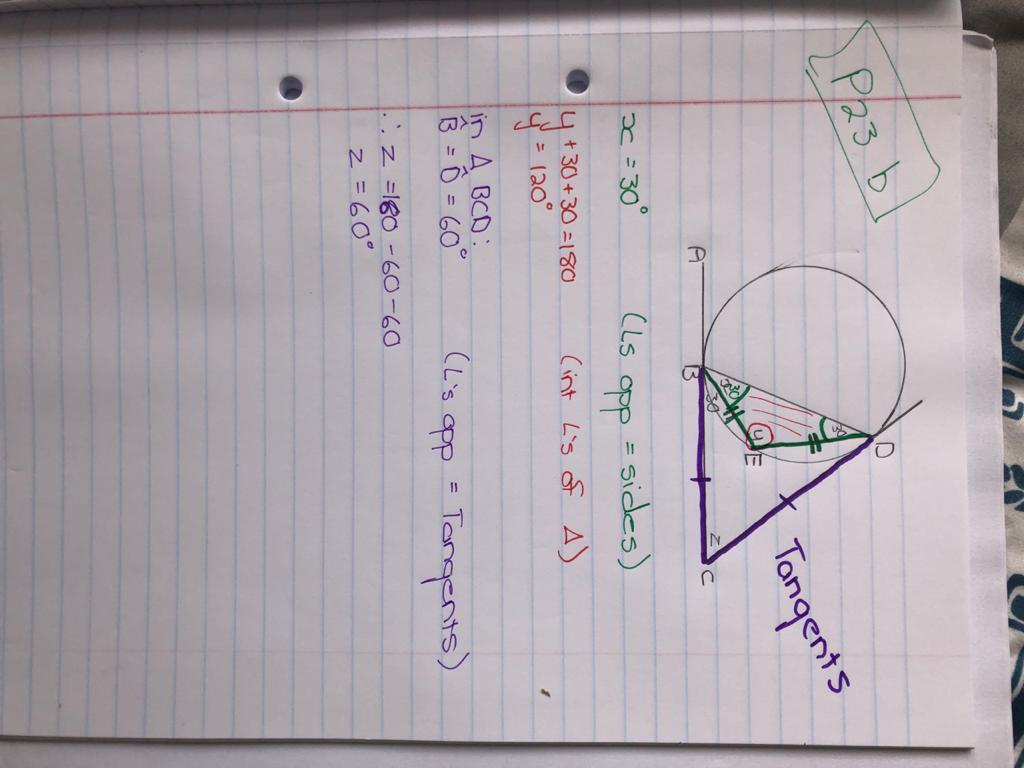 P23 b
A
B
C
D
E
30
30
30
y
z
Tangents
x = 30° (Ls opp = sides)
y + 30 + 30 = 180 (int L's of Δ)
y = 120°
in Δ BCD:
B̂ = D̂ = 60° (L's opp = Tangents)
∴ z = 180 - 60 - 60
z = 60°